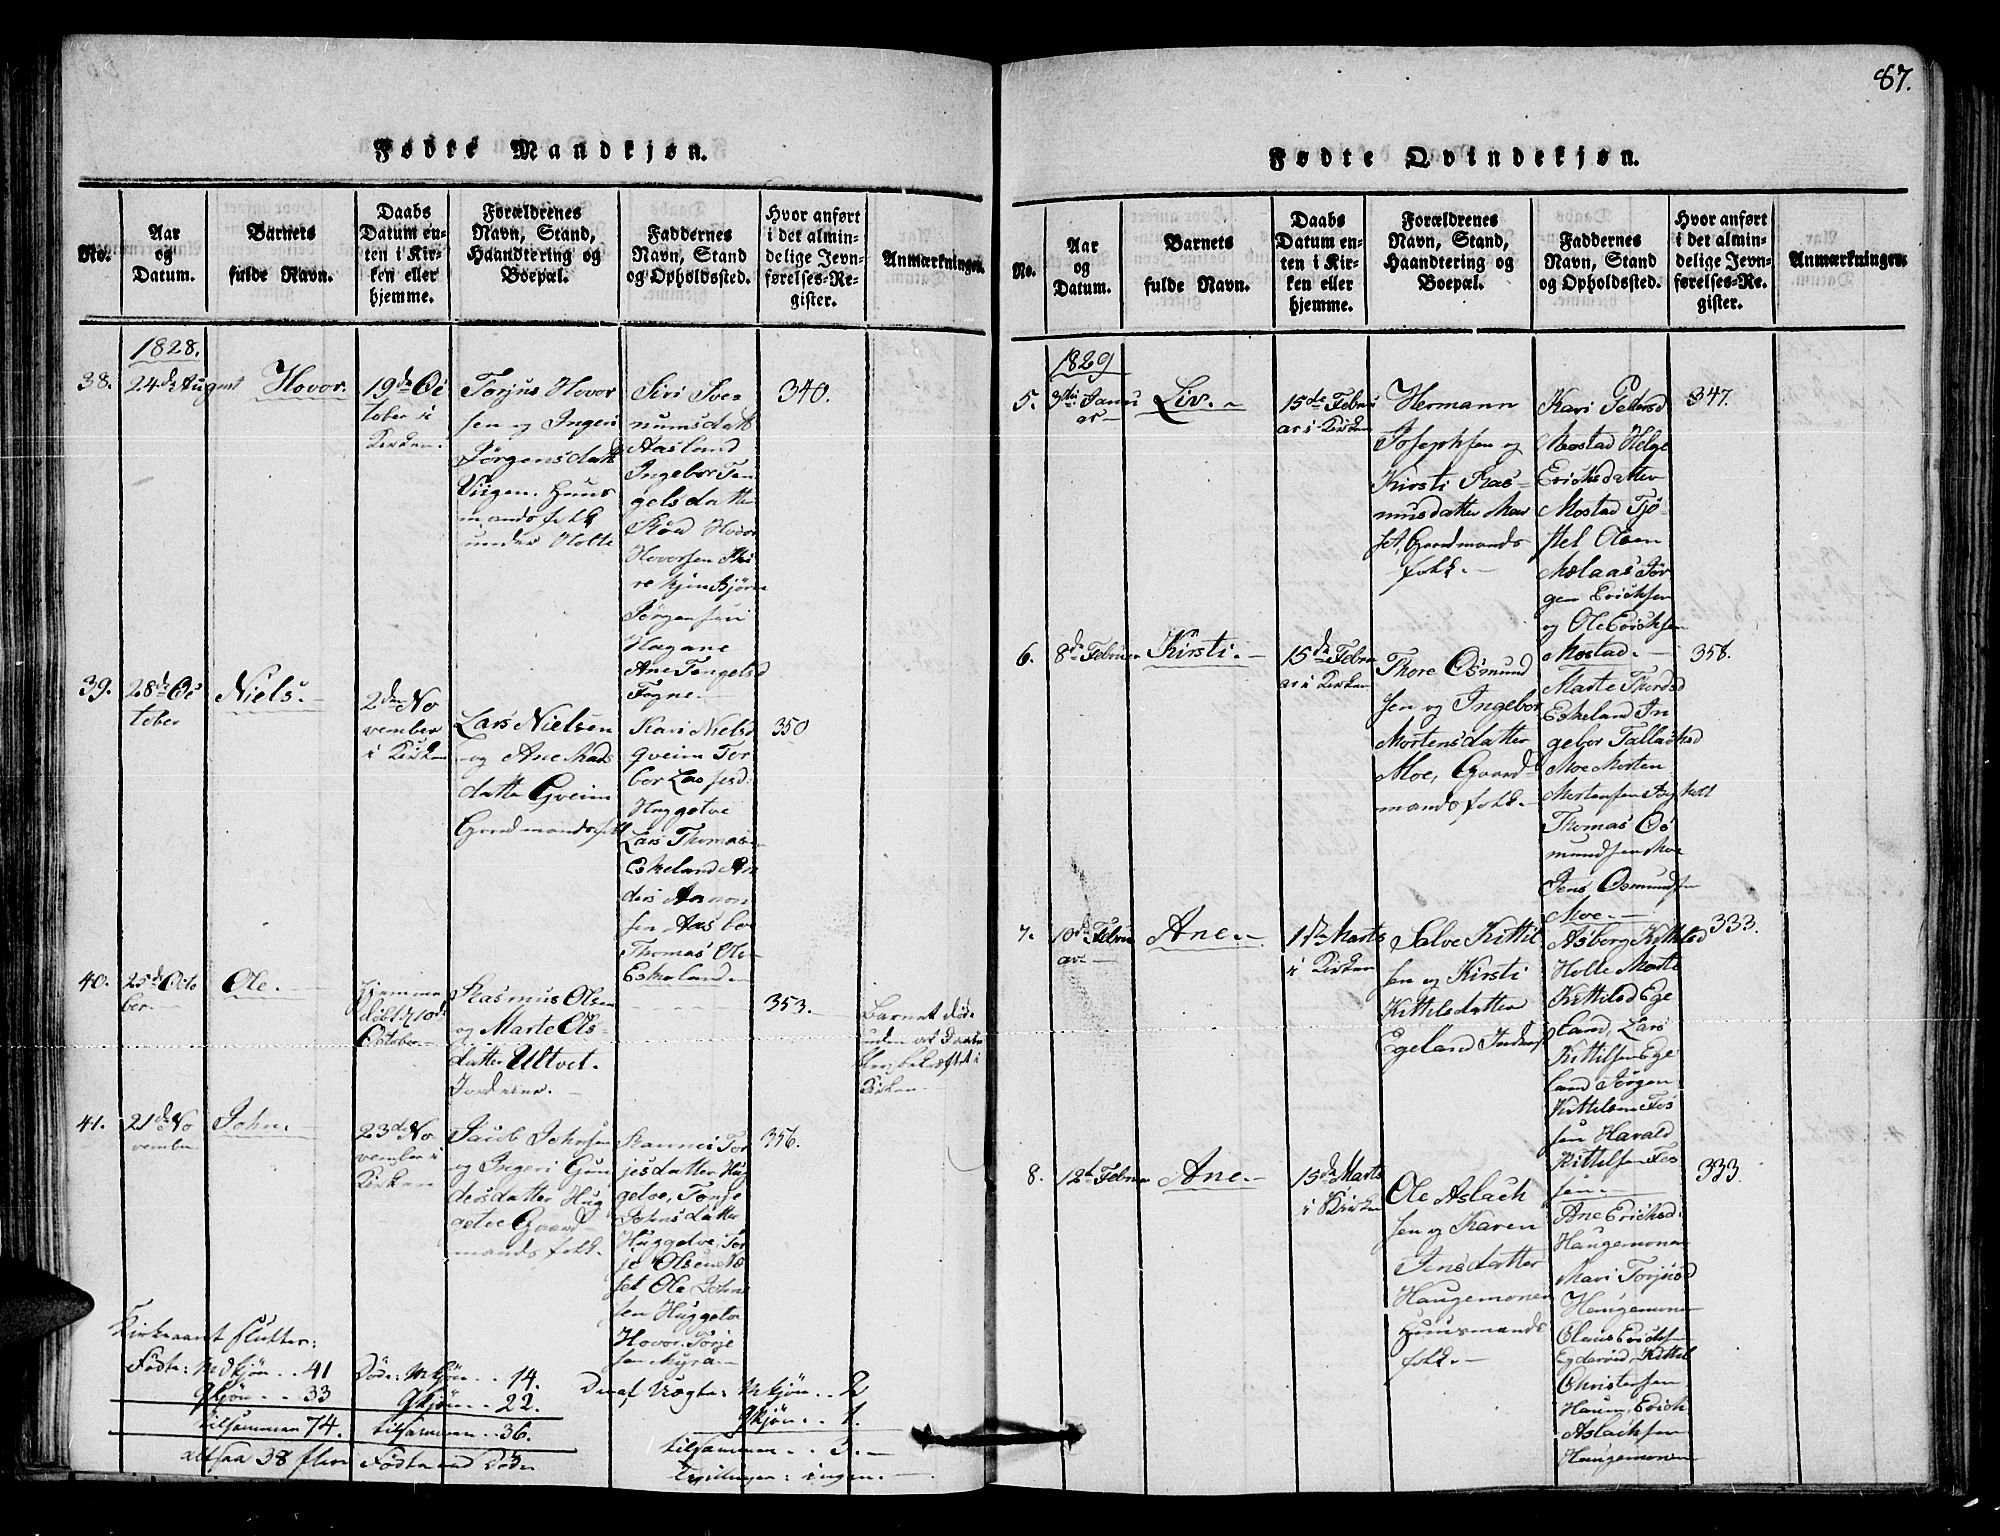 87.
Fødte Mandkjøn.
No.
Aar
og
Datum.
Barnets
fulde Navn.
Daabs
Datum en-
ten i Kir-
ken eller
hjemme.
Forældrenes
Navn, Stand,
Haandtering og
Boepæl.
Faddernes
Navn, Stand
og Opholdssted.
Hvor anført
i det almin-
delige Jevn-
førelses-Re-
gister.
Anmærkninger.
1828.
38.
24de August
Hovor.
19de Oc
tober i
Kirken.
Torjus Hovor
sen og Ingeri
Jørgensdatt
Huus
mandsfolk
under Holte
Siri Sve
numsdatt
Aasland
Ingebor Ten
gelsdatter
Hovor
Hovorsen
Bjørn
Jørgensen
Hagane
Ane Tengelsd
Fogne
340.
39.
28de Oc
tober
Niels.
2den No
vember
i Kirken
Lars Nielsen
og Ane Mads
datter Gveim
Gaardmandsfolk
Kari Nielsd
Gveim Tor
bor
Huggetve
Lars Thomas
Eskeland An
ders Aanon
sen Aasbø
Thomas Ole
Eskeland
350
40.
25de Octo
ber.
Ole.
Hjemme
døbt
October
Rasmus Olsen
og Marte Ols-
datter Ultvet.
Inderster.
353.
Barnet døde
uden at Daaben
blev bekræftet i
Kirken.
41.
21de No
vember
John.
23de No
vember i
Kirken
Jacob Johnsen
og Ingeri Gun
dersdatter Hug
getve Gaard
mandsfolk.
Tor
jesdatter Hug
getve, Tonje
Johnsdatter
Huggetve, Tor
je Olsen
set Ole John
sen Huggetve
Hovor Torje
sen Myra
356.
Kirkeaaret slutter:
Fødte: Mdkjøn . . 41
Qkjøn . . . 33
tilsammen 74.
altsaa 38 flere Fødte end Døde
Døde: Mkjøn . . 14.
Qkjøn . . 22.
tilsammen . . 36.
Deraf Uægte: Mkjøn . . 2
Qkjøn . . 1.
tilsammen . . 3.
Tvillinger: ingen.
Fødte Qvindekjøn.
No.
Aar
og
Datum.
Barnets
fulde Navn.
Daabs
Datum en-
ten i Kir-
ken eller
hjemme.
Forældrenes
Navn, Stand,
Haandtering og
Boepæl.
Faddernes
Navn, Stand
og Opholdssted.
Hvor anført
i det almin-
delige Jevn-
førelses-Re-
gister.
Anmærkninger.
1829
5.
3die Janu
ar
Liv.
15de Febru
ar i Kirken
Hermann
Josephsen og
Kirsti Ras-
musdatter Mør
set, Gaardmands
folk.
Kari Pedersd
Mostad Helge
Erichsdatter
Mostad Tjø-
stel Olsen
Aslaas Jør
gen Erichsen
og Ole Erichsen
Mostad.
347.
6.
8de Februar
Kirsti.
15de Febru
ar i Kirken
Thore Osmund
sen og Ingebor
Mortensdatter
Moe, Gaard-
mandsfolk.
Marte Thordsd
Eskeland In
gebor Tallachsd
Moe Morten
Mortensen
Thomas Os
mundsen Moe
Jens Osmundsen
Moe.
358.
7.
10de Febru
ar.
Ane.
1ste Marts
i Kirken
Salve Kittil
sen og Kirsti
Kittelsdatter
Egeland
Asborg Kittilsd
Holte Marte
Kittilsd Ege
land, Lars
Kittilsen Ege
land Jørgen
Kittelsen Fos
sen Harald
Kittilsen Fos
sen.
333.
8.
12te Februar
Ane.
15de Marts
i Kirken
Ole Aslach
sen og Karen
Jensdatter
Haugemonen
Huusmands
folk.
Ane Erichsd.
Haugemonen
Mari Torjusd
Haugemonen
Olaus Erichsen
Kittil
Christensen
Haum, Erich
Aslachsen
Haugemonen
333.